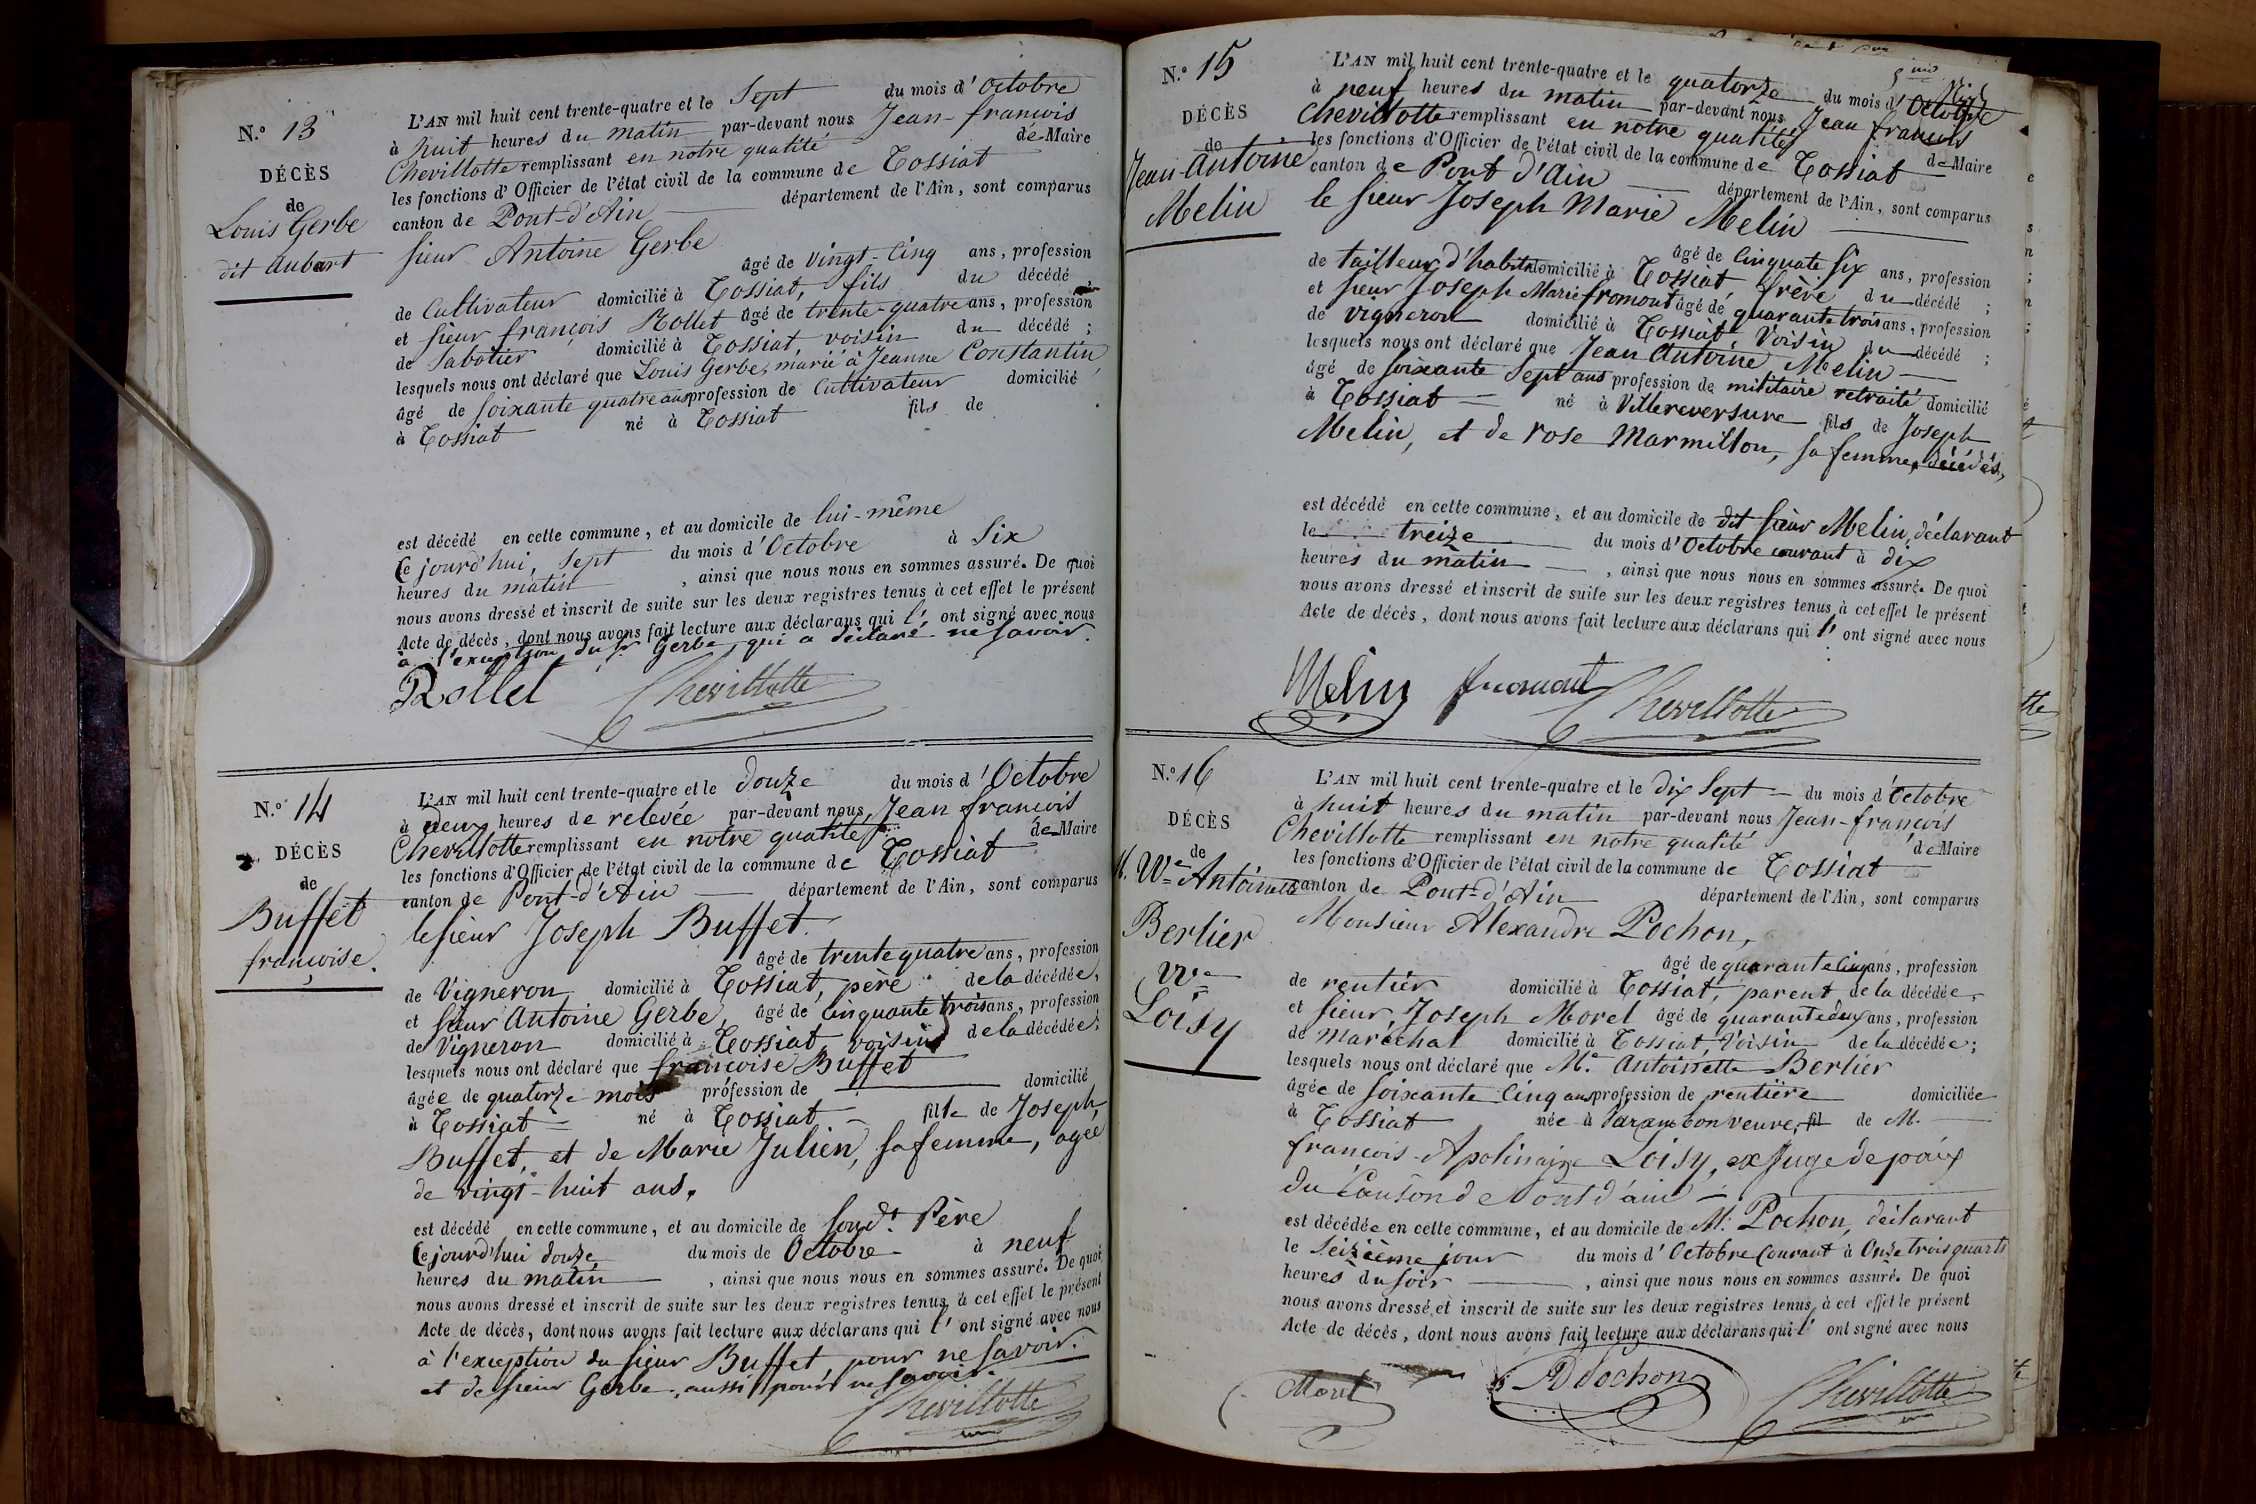 N.° 13
DÉCÈS
de
Louis Gerbe
dit aubart
L'AN mil huit cent trente-quatre et le Sept du mois d'Octobre
à huit heures du matin par-devant nous Jean-françois
Chevillotte remplissant en notre qualité de Maire
les fonctions d'Officier de l'état civil de la commune de Tossiat
canton de Pont-d'Ain département de l'Ain, sont comparus
sieur Antoine Gerbe
âgé de vingt-Cinq ans, profession
de Cultivateur domicilié à Tossiat, fils du décédé ;
et sieur françois Rollet âgé de trente-quatre ans, profession
de Sabotier domicilié à Tossiat, voisin du décédé ;
lesquels nous ont déclaré que Louis Gerbe, marié à Jeanne Constantin,
âgé de soixante quatre ans profession de Cultivateur domicilié
à Tossiat né à Tossiat fils de
est décédé en cette commune, et au domicile de lui-même
Ce jourd'hui, Sept du mois d'Octobre à Six
heures du matin, ainsi que nous nous en sommes assuré. De quoi
nous avons dressé et inscrit de suite sur les deux registres tenus à cet effet le présent
Acte de décès, dont nous avons fait lecture aux déclarans qui l' ont signé avec nous
à l'exception du Sr Gerbe qui a déclaré ne savoir.
Rollet Chevillotte
N.° 14
DÉCÈS
de
Buffet
françoise.
L'AN mil huit cent trente-quatre et le douze du mois d'Octobre
à deux heures de relevée par-devant nous, Jean françois
Chevillotte remplissant en notre qualité de Maire
les fonctions d'Officier de l'état civil de la commune de Tossiat
canton de Pont-d'Ain département de l'Ain, sont comparus
le sieur Joseph Buffet.
âgé de trente quatre ans, profession
de Vigneron domicilié à Tossiat, père de la décédée,
et sieur Antoine Gerbe, âgé de Cinquante trois ans, profession
de Vigneron domicilié à Tossiat, voisin de la décédée ;
lesquels nous ont déclaré que françoise Buffet
âgée de quatorze mois profession de domicilié
à Tossiat né à Tossiat fille de Joseph
Buffet, et de Marie Julien, sa femme, agée
de vingt-huit ans.
est décédé en cette commune, et au domicile de son dt. Père
Ce jourd'hui douze du mois de Octobre à neuf
heures du matin, ainsi que nous nous en sommes assuré. De quoi
nous avons dressé et inscrit de suite sur les deux registres tenus à cet effet le présent
Acte de décès, dont nous avons fait lecture aux déclarans qui l' ont signé avec nous
à l'exception du sieur Buffet, pour ne savoir.
et de sieur Gerbe, aussi pour ne savoir.
Chevillotte
N.° 15
DÉCÈS
de
Jean-Antoine
Melin
L'AN mil huit cent trente-quatre et le quatorze du mois d'Octobre
à neuf heures du matin par-devant nous Jean françois
Chevillotte remplissant en notre qualité de Maire
les fonctions d'Officier de l'état civil de la commune de Tossiat
canton de Pont d'Ain département de l'Ain, sont comparus
le sieur Joseph Marie Melin
âgé de Cinquate six ans, profession
de tailleur d'habits domicilié à Tossiat frère du décédé ;
et sieur Joseph Marie fromont âgé de quarante trois ans, profession
de vigneron domicilié à Tossiat, Voisin du décédé ;
lesquels nous ont déclaré que Jean Antoine Melin
âgé de soixante Sept ans profession de militaire retraité domicilié
à Tossiat né à Villereversure fils de Joseph
Melin, et de rose Marmillon, sa femme, décédés,
est décédé en cette commune, et au domicile de dit sieur Melin, déclarant
le treize du mois d'Octobre courant à dix
heures du matin, ainsi que nous nous en sommes assuré. De quoi
nous avons dressé et inscrit de suite sur les deux registres tenus à cet effet le présent
Acte de décès, dont nous avons fait lecture aux déclarans qui l' ont signé avec nous
Melin fromont Chevillotte
N.° 16
DÉCÈS
de
Antoinette
Berlier
Vve
Loisy
L'AN mil huit cent trente-quatre et le dix Sept du mois d'Octobre
à huit heures du matin par-devant nous Jean-françois
Chevillotte remplissant en notre qualité de Maire
les fonctions d'Officier de l'état civil de la commune de Tossiat
canton de Pont-d'Ain département de l'Ain, sont comparus
Monsieur Alexandre Pochon,
âgé de quarante Cinq ans, profession
de rentier domicilié à Tossiat, parent de la décédée,
et sieur, Joseph Morel âgé de quarante deux ans, profession
de Maréchal domicilié à Tossiat, Voisin de la décédée ;
lesquels nous ont déclaré que Me. Antoinette Berlier
âgée de soixante Cinq ans profession de rentière domiciliée
à Tossiat née à Varambon veuve, fil de M.
françois-Apolinaire Loisy, ex Juge de paix
du Canton de Pont d'ain
est décédée en cette commune, et au domicile de M. Pochon, déclarant
le Seizième jour du mois d'Octobre Courant à Onze trois quarts
heures du soir, ainsi que nous nous en sommes assuré. De quoi
nous avons dressé et inscrit de suite sur les deux registres tenus à cet effet le présent
Acte de décès, dont nous avons fait lecture aux déclarans qui l' ont signé avec nous
Morel Pochon Chevillotte